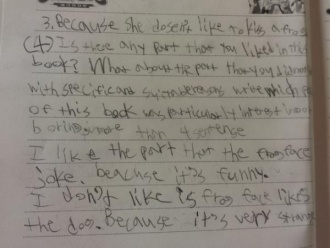 3. Because she dosen't like to kiss a frog
④ Is there any part that you liked in this
book? What about the part that you didn't
with specific write which
of this book was particularly interest
boring more than 4 sentence
I like the part that the frog face
joke. beacuse it's funny.
I don't like is frog face likes
the dog. Because it's very strange